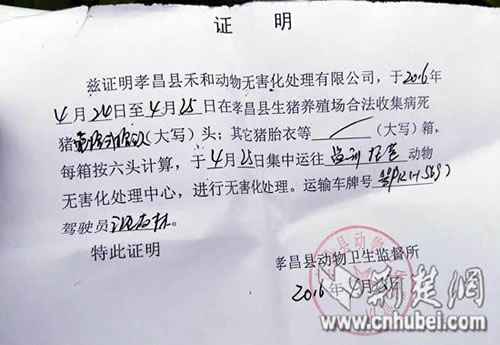 证 明
兹证明孝昌县禾和动物无害化处理有限公司，于2016年
4月24日至4月25日在孝昌县生猪养殖场合法收集病死
猪（大写）头；其它猪胎衣等／（大写）箱，
每箱按六头计算，于4月25日集中运往动物
无害化处理中心，进行无害化处理。运输车牌号
驾驶员。
特此证明
孝昌县动物卫生监督所
2016年4月25日
荆楚網
www.cnhubei.com